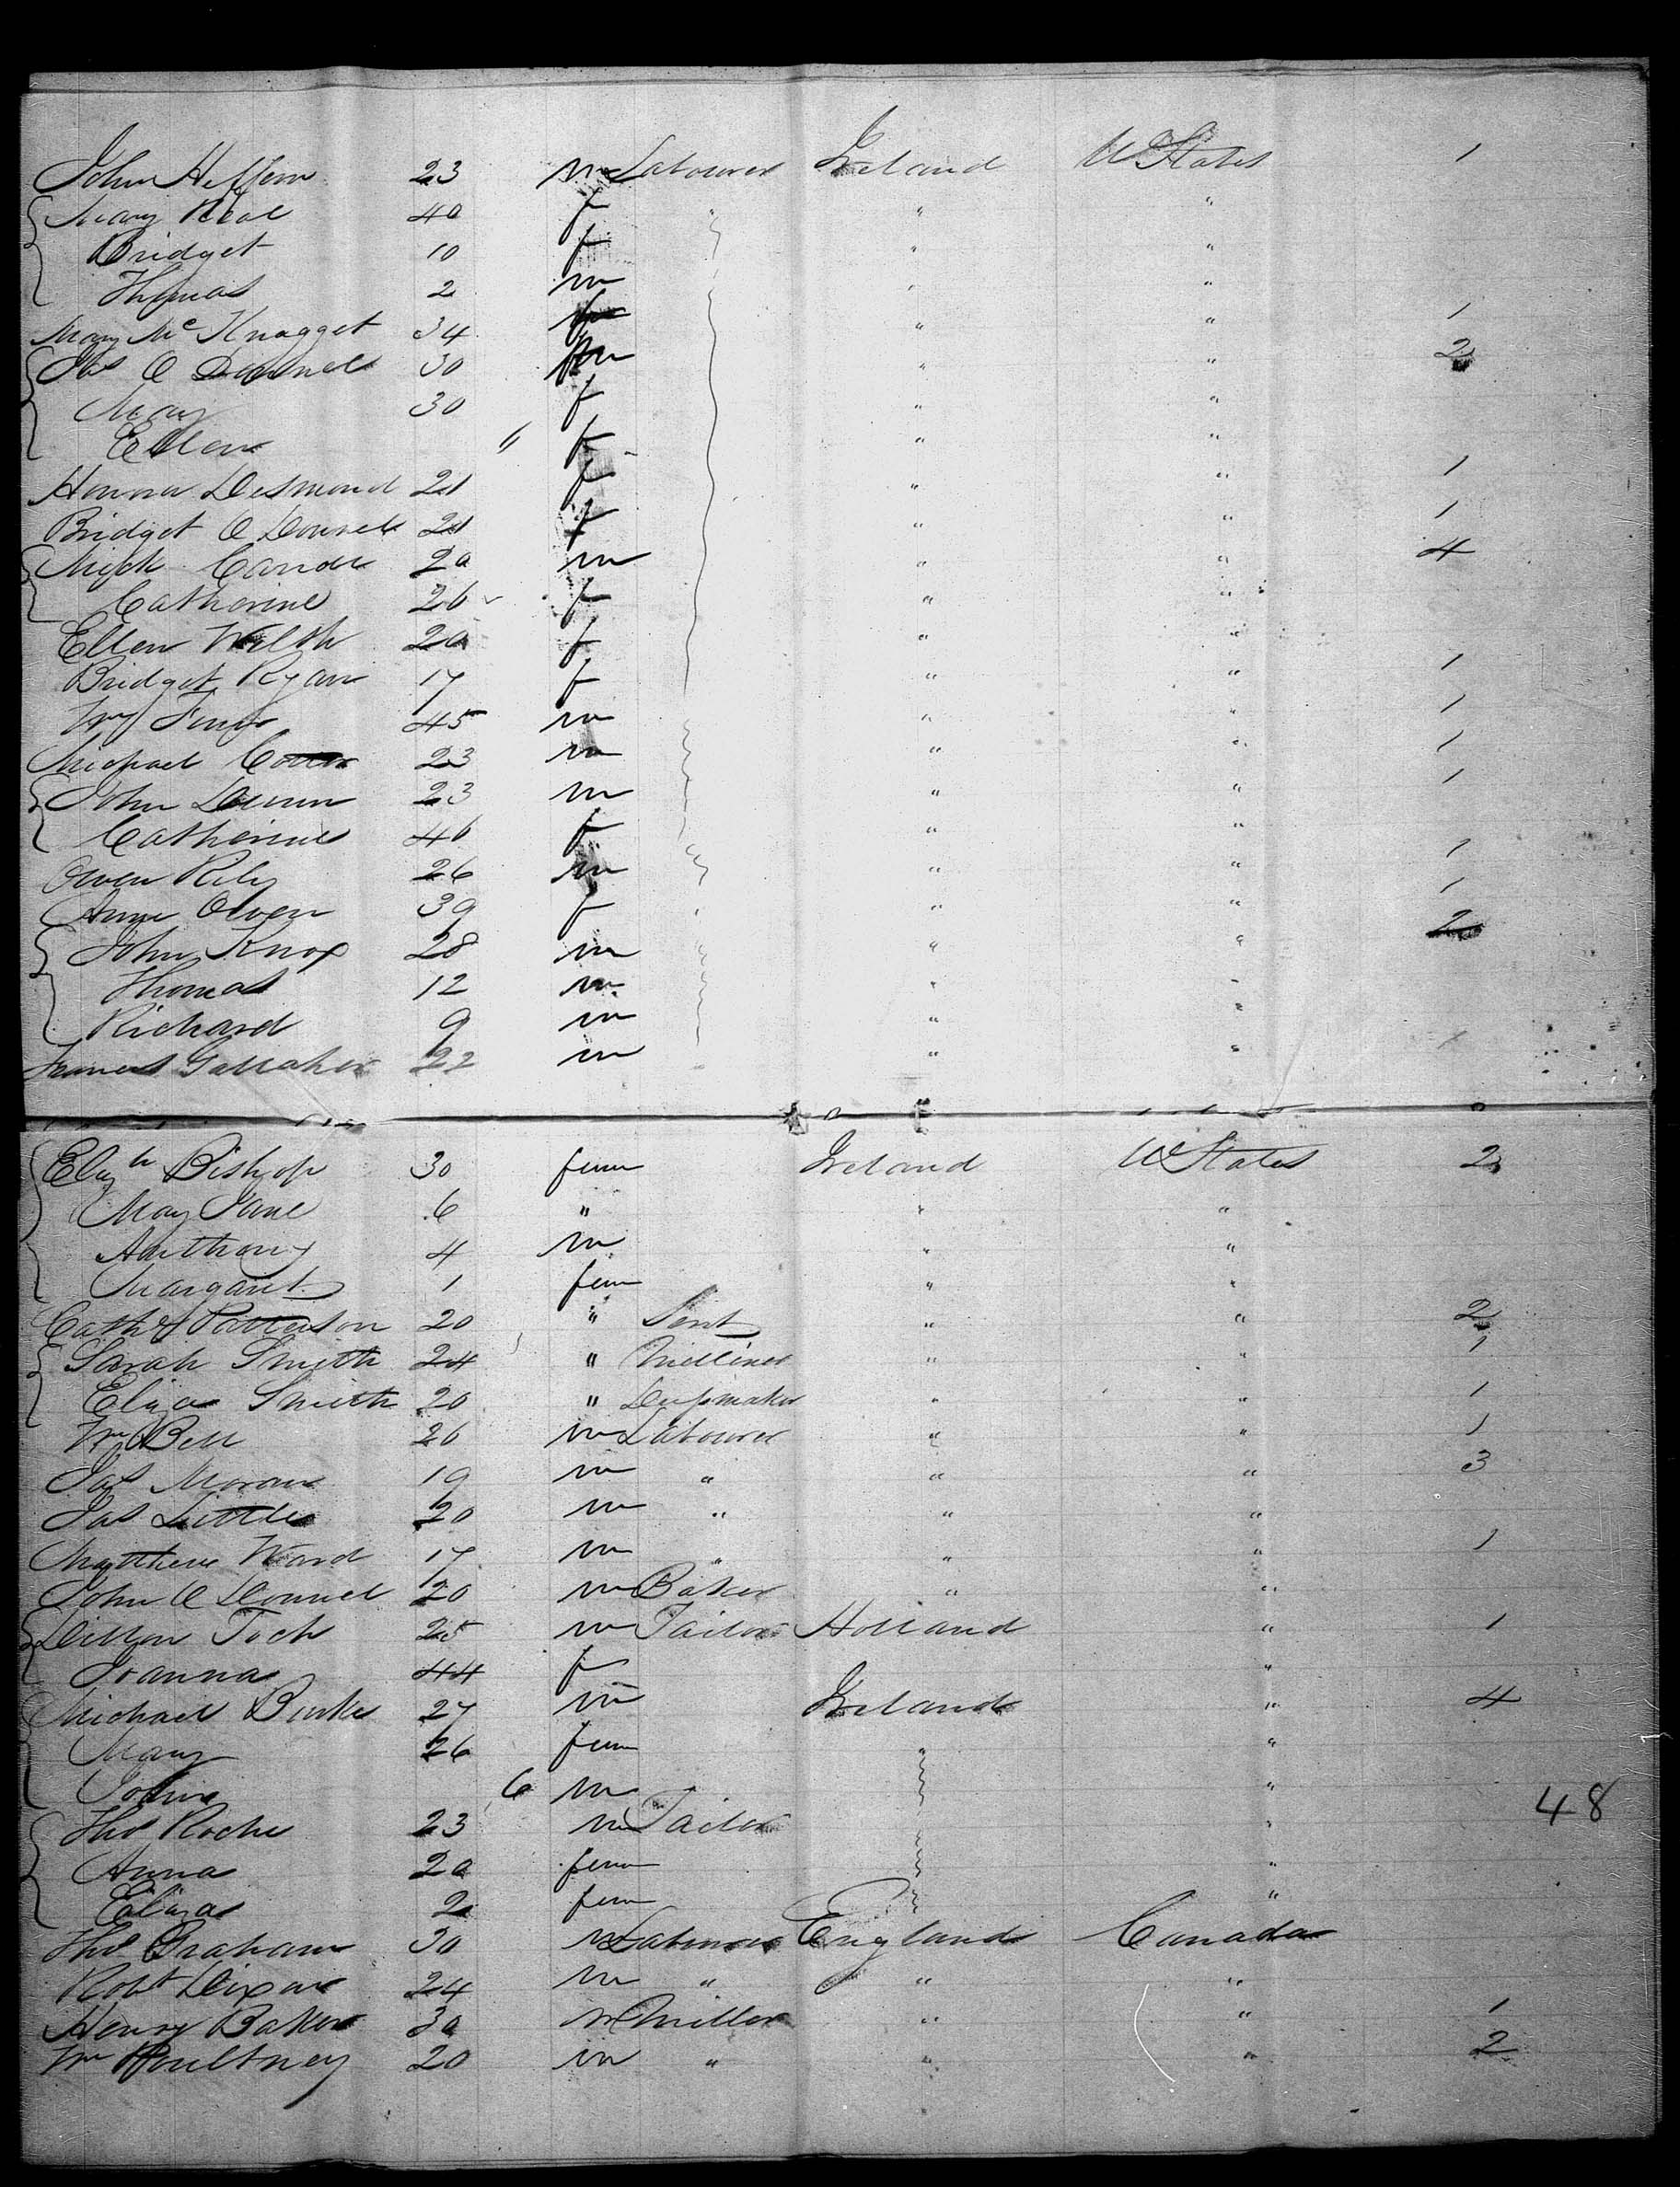 John Heffern 23 m Labourer Ireland U States 1
Mary Neal 40 f " " "
Bridget 10 f " "
Thomas 2 m " "
Mary McKnagget 34 f " " 1
Jas O Donnel 30 m " " 2
Mary 30 f " "
Ellen " f " "
Honora Desmond 21 f " " 1
Bridget O Donnel 21 f " " 1
Mick 20 m " " 4
Catherine 26 f " "
Ellen Welsh 20 f " "
Bridget Ryan 17 f " " 1
Wm 45 m " " 1
Michael Cotter 23 m " " 1
John Dunn 23 m " " 1
Catherine 46 f " "
Owen Rily 26 m " " 1
Anne Owen 39 f " " " 1
John Knox 28 m " " " 2
Thomas 12 m " "
Richard 9 m " "
Frances Gallaher 22 m " "
Elizh Bishop 30 fem Ireland U States 2
May Jane 6 " " "
Anthony 4 m " "
Margaret 1 fem " "
Cath Patterson 20 " Servt " " 2
Sarah Smith 24 " Milliner " " 1
Eliza Smith 20 " " " 1
Wm Bell 26 m Labourer " " 1
Jas Moran 19 m " " " 3
Jas Little 20 m " " "
Matthew Ward 17 m " " " 1
John O Donnel 20 m Baker " "
Toch 25 m Tailor Holland " 1
Joanna 44 f "
Michael Burke 27 m Ireland " 4
Mary 26 fem " "
John 6 m "
48
Thos Roche 23 m Tailor "
Anna 20 fem "
Eliza 2 fem "
Thos Graham 30 m Labourer England Canada
Robt Dixon 24 m " " "
Henry Baker 30 m Miller " " 1
Wm Poultney 20 m " " " 2